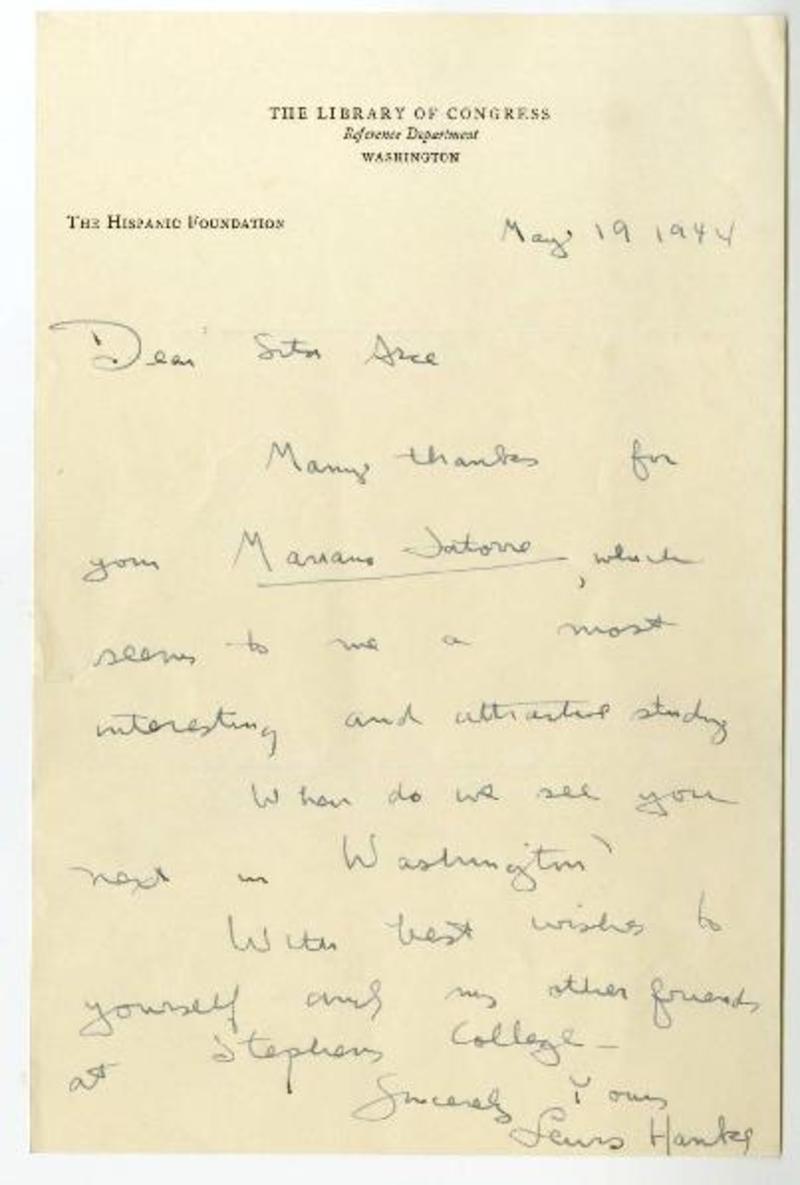 THE LIBRARY OF CONGRESS
Reference Department
WASHINGTON
THE HISPANIC FOUNDATION
May 19 1944
Dear Srta Arce
Many thanks for
your Mariano Latorre, which
seems to me a most
interesting and attractive study
When do we see you
next in Washington?
With best wishes to
yourself and my other friends
at Stephens College –
Sincerely Yours
Lewis Hanke